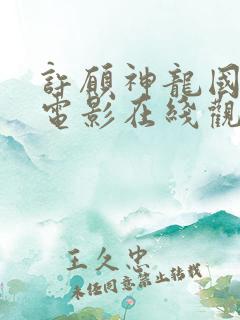 許願神龍國
電影在綫觀
王久忠
未經同意禁止轉載